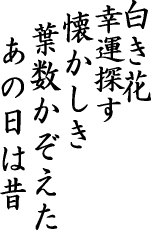 白き花
幸運探す
懐かしき
葉数かぞえた
あの日は昔